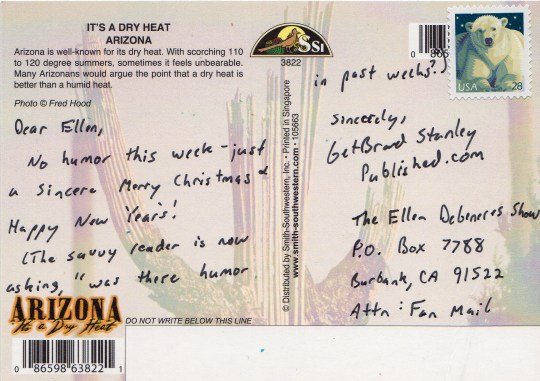 IT'S A DRY HEAT
ARIZONA
Arizona is well-known for its dry heat. With scorching 110
to 120 degree summers, sometimes it feels unbearable.
Many Arizonans would argue the point that a dry heat is
better than a humid heat.
Photo © Fred Hood
Dear Ellen,
No humor this week-just
a sincere Merry Christmas &
Happy New Years!
(The savvy reader is now
asking, "was there humor
ARIZONA
It's a Dry Heat
DO NOT WRITE BELOW THIS LINE
0 86598 63822 1
SSI
3822
© Distributed by Smith-Southwestern, Inc. • Printed in Singapore
www.smith-southwestern.com • 105663
in past weeks?)
sincerely,
GetBrad Stanley
Published.com
The Ellen Debeneres Show
P.O. Box 7788
Burbank, CA 91522
Attn: Fan Mail
USA
28